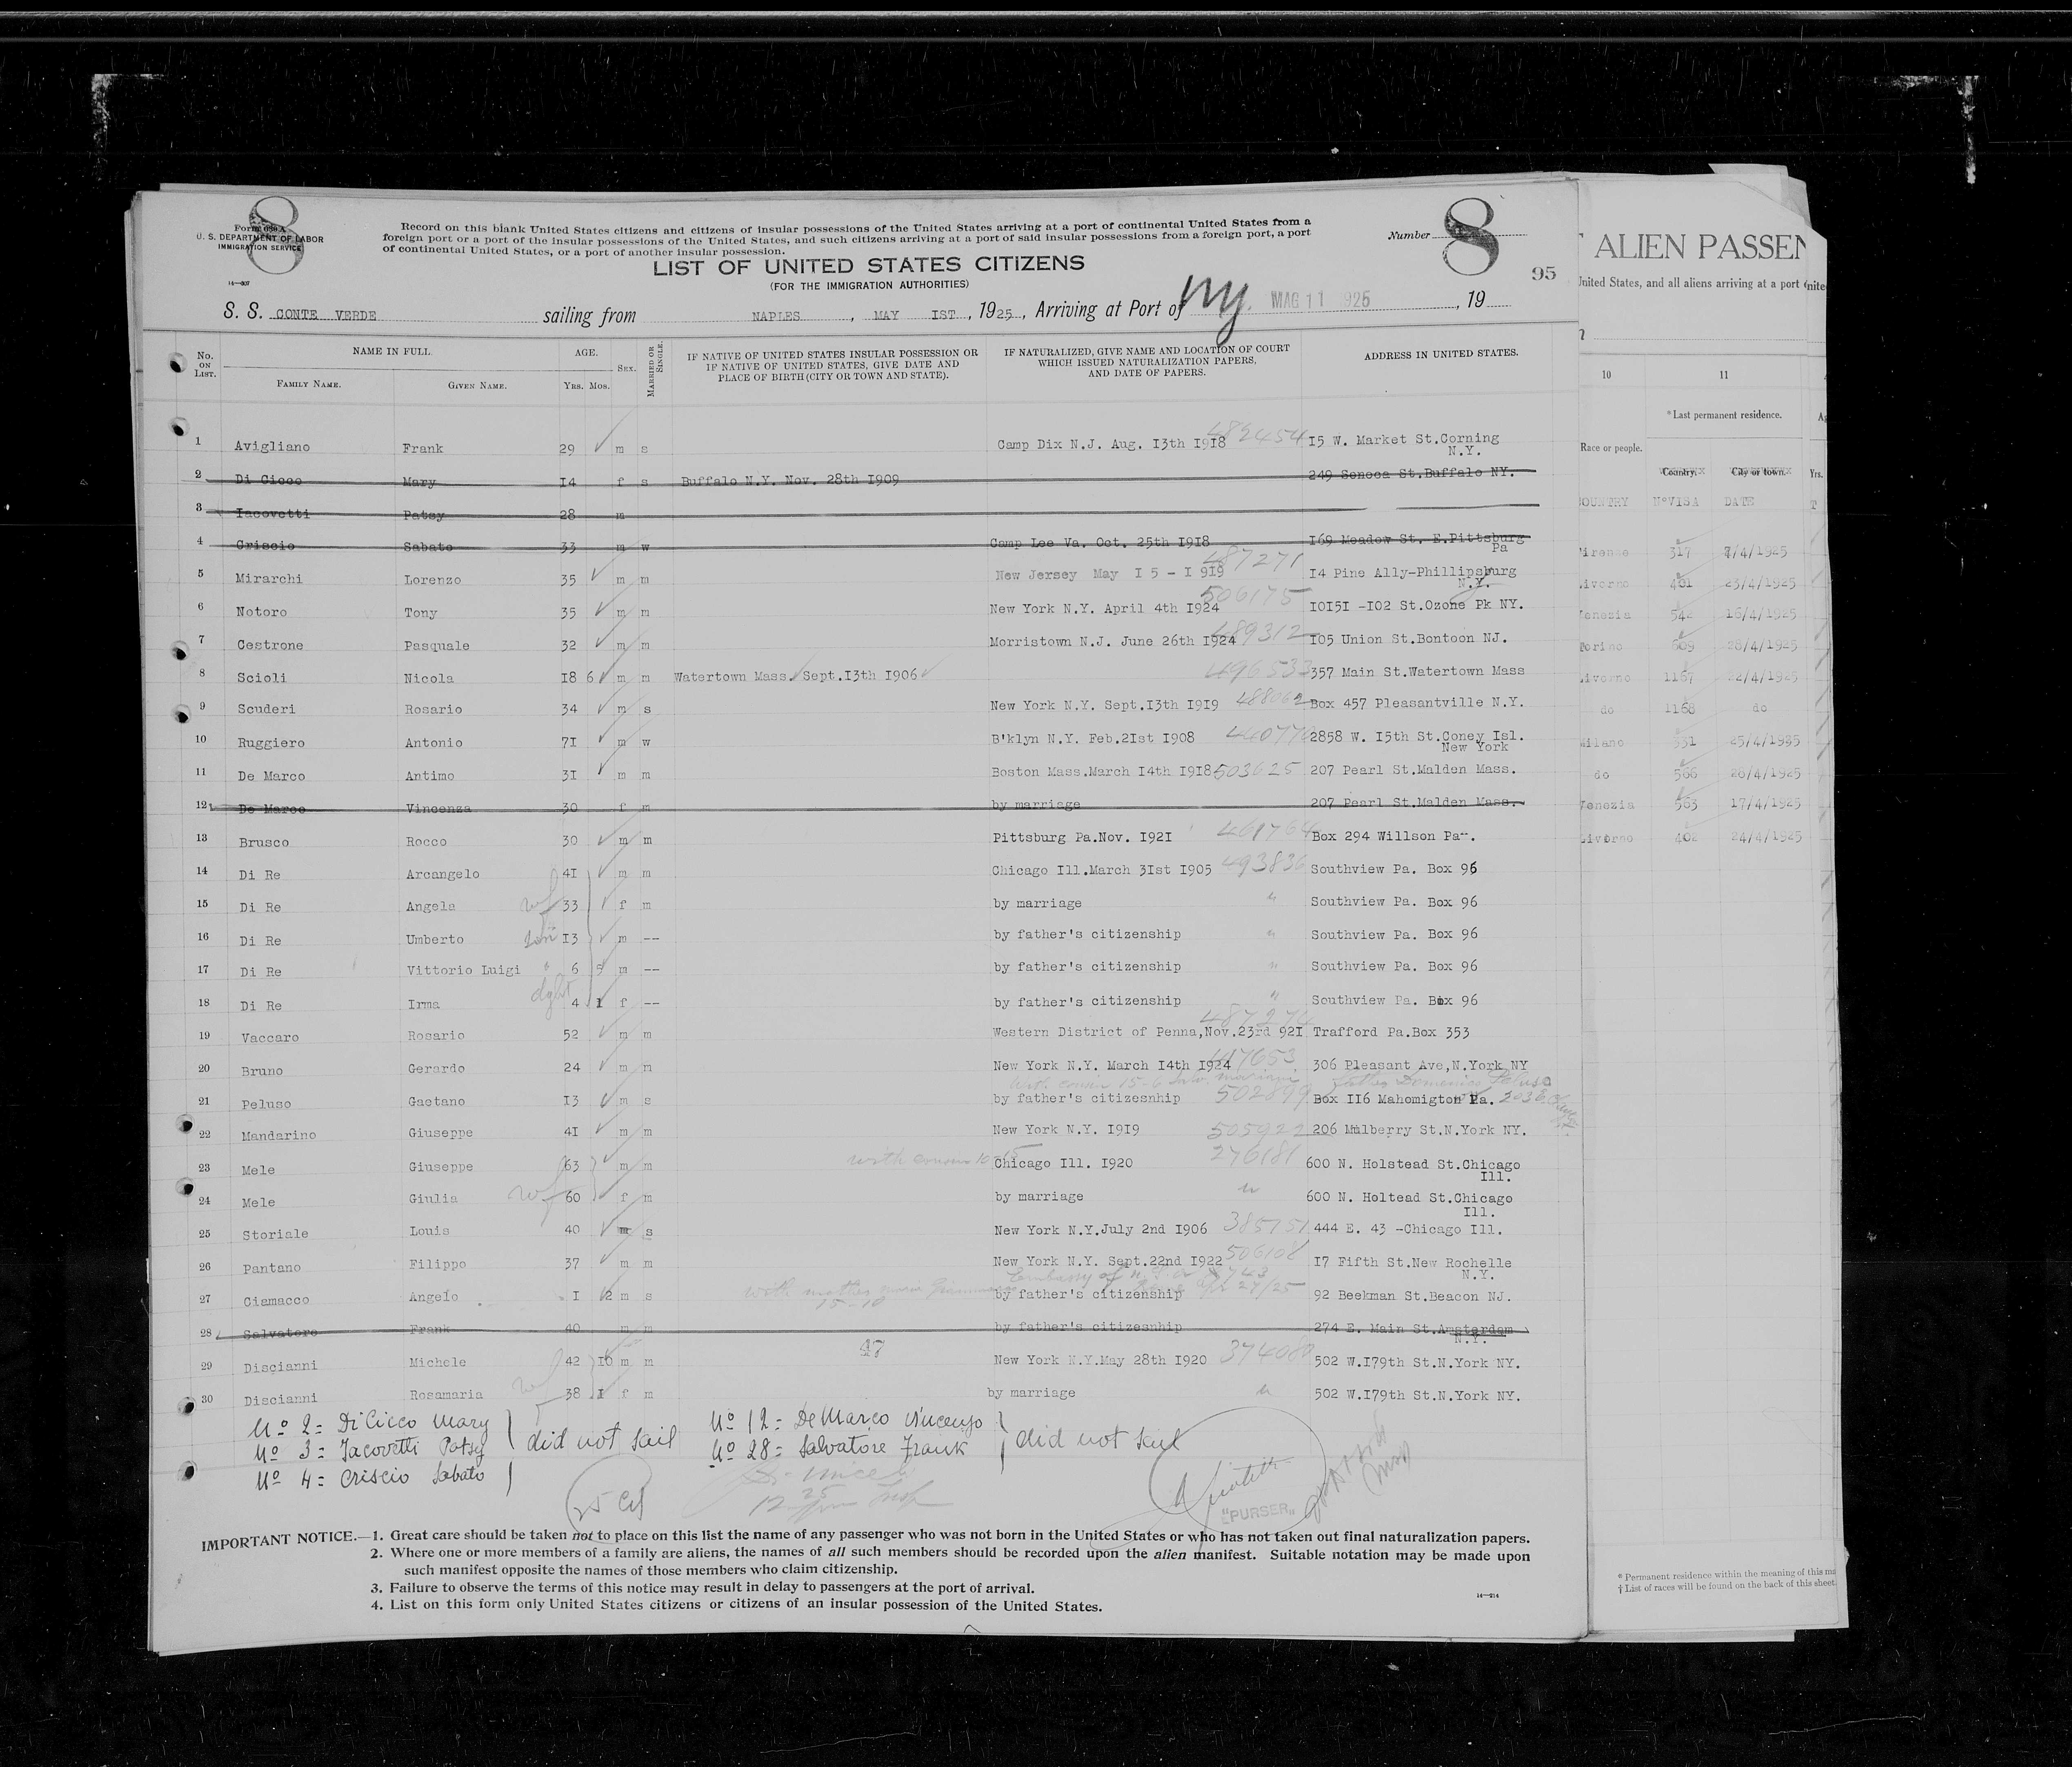 8
Form 630 A
U. S. DEPARTMENT OF LABOR
IMMIGRATION SERVICE
14—307
Record on this blank United States citizens and citizens of insular possessions of the United States arriving at a port of continental United States from a
foreign port or a port of the insular possessions of the United States, and such citizens arriving at a port of said insular possessions from a foreign port, a port
of continental United States, or a port of another insular possession.
Number 8
95
LIST OF UNITED STATES CITIZENS
(FOR THE IMMIGRATION AUTHORITIES)
S. S. CONTE VERDE sailing from NAPLES, MAY IST, 1925, Arriving at Port of NY. MAG 11 1925, 19
No. ON LIST. NAME IN FULL. AGE. SEX. MARRIED OR SINGLE. IF NATIVE OF UNITED STATES INSULAR POSSESSION OR IF NATIVE OF UNITED STATES, GIVE DATE AND PLACE OF BIRTH (CITY OR TOWN AND STATE). IF NATURALIZED, GIVE NAME AND LOCATION OF COURT WHICH ISSUED NATURALIZATION PAPERS, AND DATE OF PAPERS. ADDRESS IN UNITED STATES.
FAMILY NAME. GIVEN NAME. YRS. MOS.
1 Avigliano Frank 29 m s Camp Dix N.J. Aug. I3th I9I8 482454 I5 W. Market St.Corning N.Y.
2 Di Cicco Mary I4 f s Buffalo N.Y. Nov. 28th I909 249 Seneca St.Buffalo NY.
3 Iacovetti Patsy 28 m
4 Criscio Sabato 33 m w Camp Lee Va. Oct. 25th I9I8 I69 Meadow St. E.Pittsburg Pa
5 Mirarchi Lorenzo 35 m m New Jersey May I 5 - I 9I9 487271 I4 Pine Ally-Phillipsburg N.Y.
6 Notoro Tony 35 m m New York N.Y. April 4th I924 506175 I0I5I -I02 St.Ozone Pk NY.
7 Cestrone Pasquale 32 m m Morristown N.J. June 26th I924 489312 I05 Union St.Bontoon NJ.
8 Scioli Nicola I8 6 m m Watertown Mass. Sept.I3th I906 496533 357 Main St.Watertown Mass
9 Scuderi Rosario 34 m s New York N.Y. Sept.I3th I9I9 488062 Box 457 Pleasantville N.Y.
10 Ruggiero Antonio 7I m w B'klyn N.Y. Feb.2Ist I908 2858 W. I5th St.Coney Isl. New York
11 De Marco Antimo 3I m m Boston Mass.March I4th I9I8 503625 207 Pearl St.Malden Mass.
12 De Marco Vincenza 30 f m by marriage 207 Pearl St.Malden Mass.
13 Brusco Rocco 30 m m Pittsburg Pa.Nov. I92I 461764 Box 294 Willson Pa-.
14 Di Re Arcangelo 4I m m Chicago Ill.March 3Ist I905 493836 Southview Pa. Box 96
15 Di Re Angela wf 33 f m by marriage " Southview Pa. Box 96
16 Di Re Umberto son I3 m -- by father's citizenship " Southview Pa. Box 96
17 Di Re Vittorio Luigi " 6 5 m -- by father's citizenship " Southview Pa. Box 96
18 Di Re Irma dght 4 I f -- by father's citizenship " Southview Pa. Box 96
19 Vaccaro Rosario 52 m m Western District of Penna,Nov.23rd 92I 487274 Trafford Pa.Box 353
20 Bruno Gerardo 24 m m New York N.Y. March I4th I924 306 Pleasant Ave,N.York NY
21 Peluso Gaetano I3 m s by father's citizesnhip 502899 Box II6 Mahomigton Pa.
father Domenico Peluso
22 Mandarino Giuseppe 4I m m New York N.Y. I9I9 505922 206 Mulberry St.N.York NY.
23 Mele Giuseppe 63 m m Chicago Ill. I920 276181 600 N. Holstead St.Chicago Ill.
24 Mele Giulia wf 60 f m by marriage " 600 N. Holtead St.Chicago Ill.
25 Storiale Louis 40 m s New York N.Y.July 2nd I906 385751 444 E. 43 -Chicago Ill.
26 Pantano Filippo 37 m m New York N.Y. Sept.22nd I922 506108 I7 Fifth St.New Rochelle N.Y.
27 Ciamacco Angelo I 2 m s with mother 15-10 by father's citizenship 92 Beekman St.Beacon NJ.
28 Salvatore Frank 40 m m by father's citizesnhip 274 E. Main St.Amsterdam N.Y.
47
29 Discianni Michele 42 I0 m m New York N.Y.May 28th I920 374080 502 W.I79th St.N.York NY.
30 Discianni Rosamaria wf 38 I f m by marriage " 502 W.I79th St.N.York NY.
No 2= DiCicco Mary
No 3= Iacovetti Patsy
No 4= Criscio Sabato
did not sail
No 12= DeMarco Vincenzo
No 28= Salvatore Frank
did not sail
25 Cit
"PURSER"
IMPORTANT NOTICE.—1. Great care should be taken not to place on this list the name of any passenger who was not born in the United States or who has not taken out final naturalization papers.
2. Where one or more members of a family are aliens, the names of all such members should be recorded upon the alien manifest. Suitable notation may be made upon
such manifest opposite the names of those members who claim citizenship.
3. Failure to observe the terms of this notice may result in delay to passengers at the port of arrival.
4. List on this form only United States citizens or citizens of an insular possession of the United States.
14—214
ALIEN PASSEN
United States, and all aliens arriving at a port
10 11
*Last permanent residence.
Race or people. Country. City or town. Yrs.
COUNTRY No VISA DATE
Firenze 317 7/4/1925
Livorno 401 23/4/1925
Venezia 544 16/4/1925
Torino 609 28/4/1925
Livorno 1167 22/4/1925
do 1168 do
Milano 551 25/4/1925
do 566 28/4/1925
Venezia 563 17/4/1925
Livorno 402 24/4/1925
* Permanent residence within the meaning of this ma
† List of races will be found on the back of this sheet.